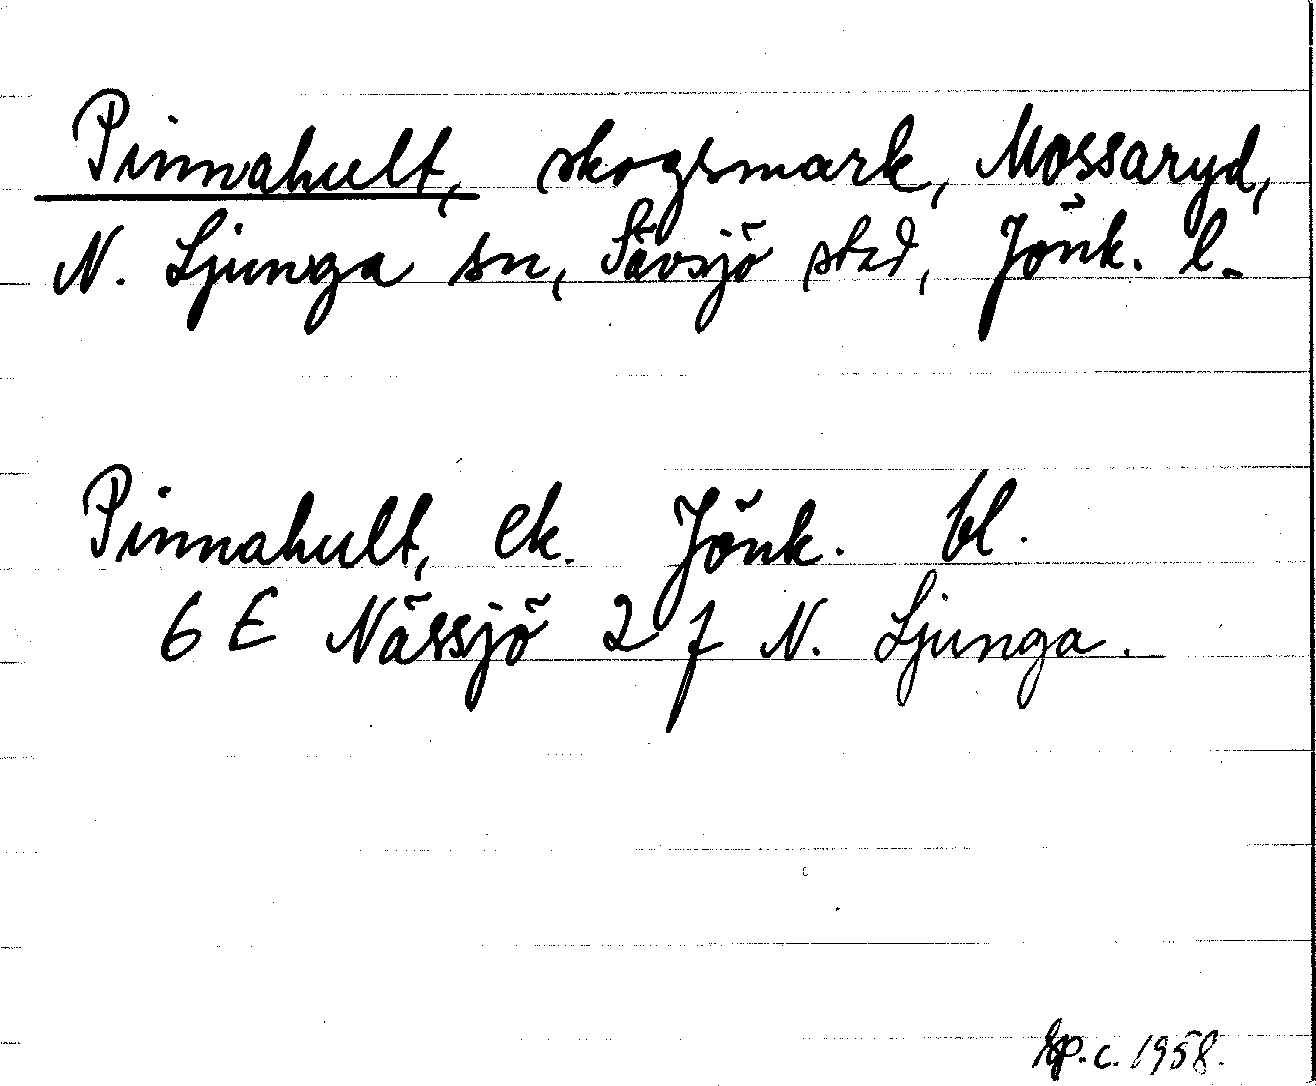 Pinnahult, skogsmark, Mossaryd,
N. Ljunga sn, Sävsjö stad, Jönk. l.
Pinnahult, ek. Jönk. bl.
6 E Nässjö 2 f N. Ljunga.
c. 1958.